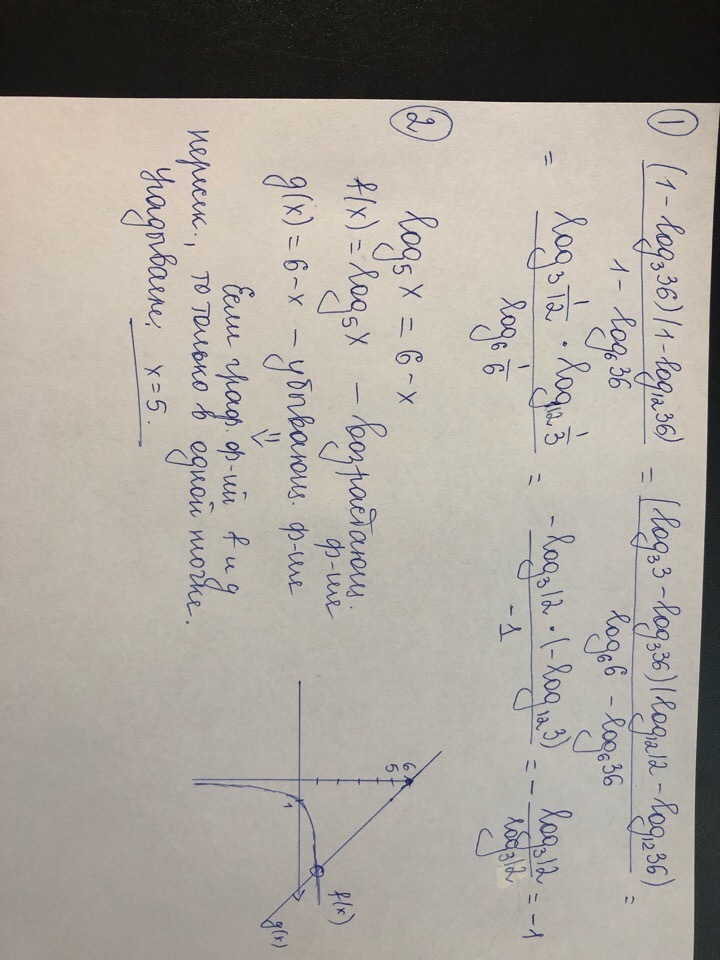 ① (1 - log₃36)(1 - log₁₂36) / (1 - log₆36) = (log₃3 - log₃36)(log₁₂12 - log₁₂36) / (log₆6 - log₆36) =
= log₃ 1/12 · log₁₂ 1/3 / log₆ 1/6 = - log₃12 · (- log₁₂3) / -1 = - log₃12 / log₃12 = -1
② log₅x = 6 - x
f(x) = log₅x - возрастающ. ф-ция
g(x) = 6 - x - убывающ. ф-ция
⇓
Если граф. ф-ий f и g
пересек., то только в одной точке.
Угадываем: x = 5.
6
5
1
f(x)
g(x)